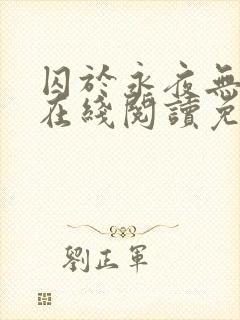 囚於永夜無
在綫閱讀免
劉正軍